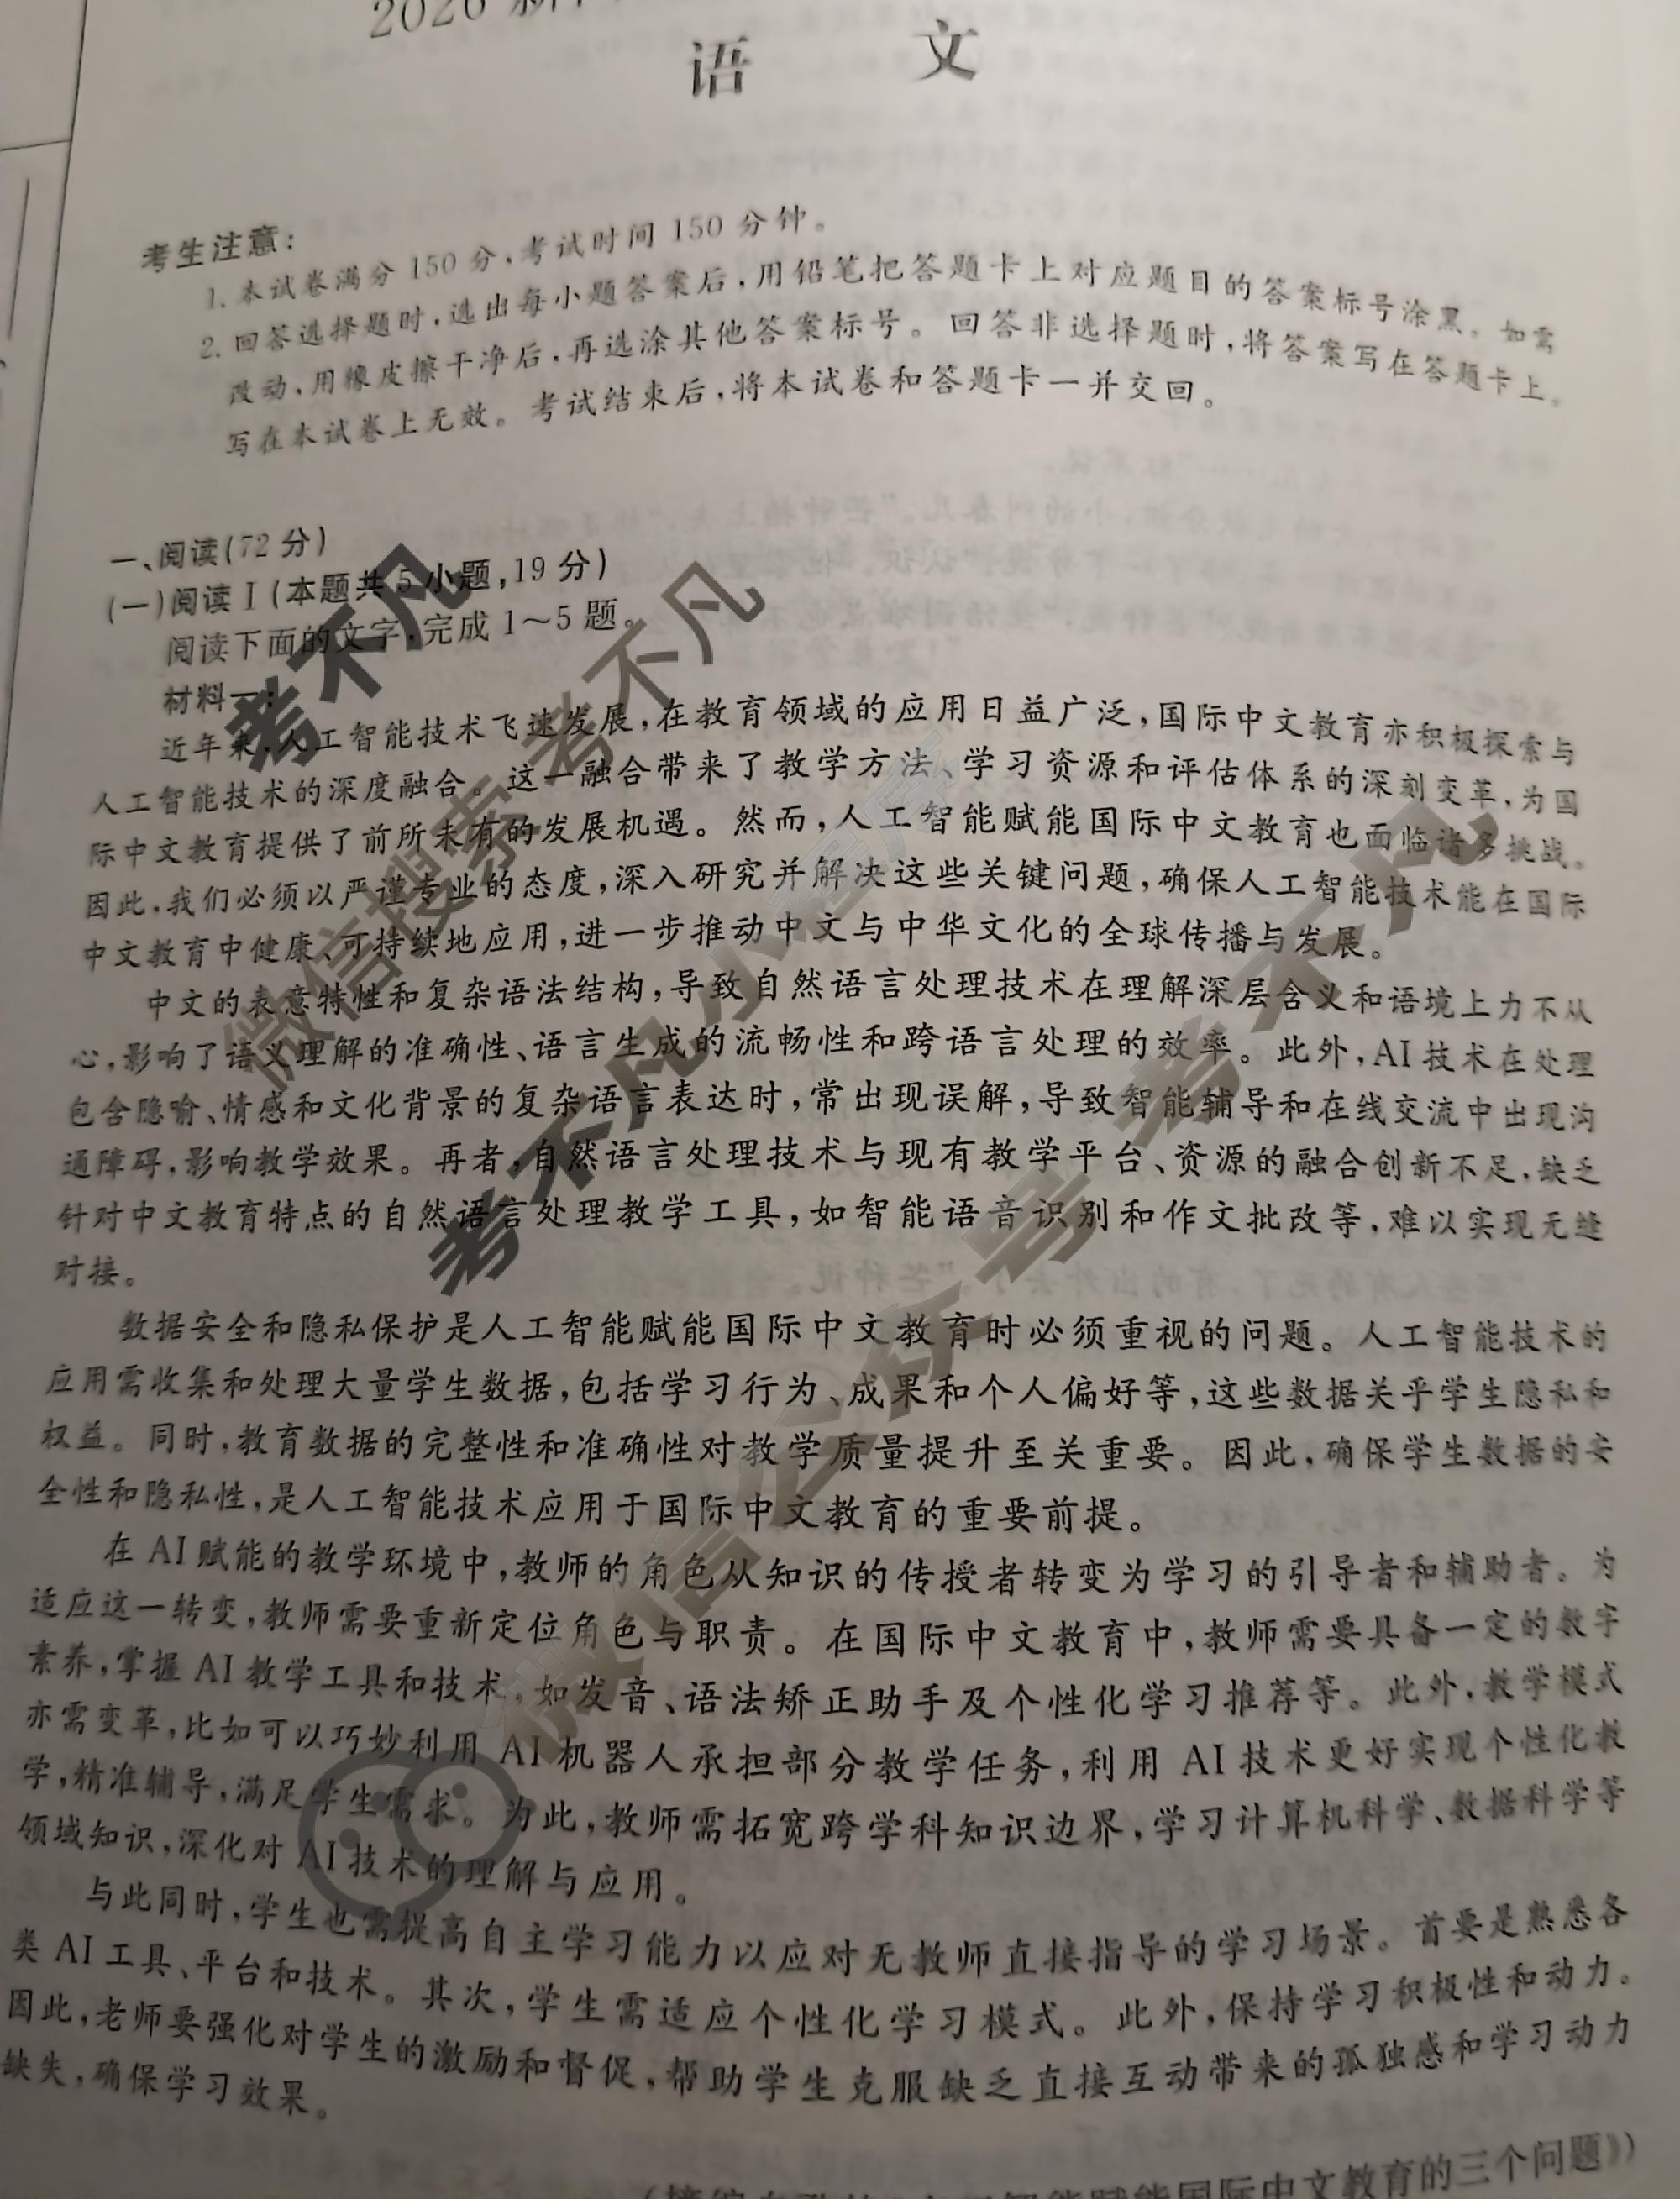 2026
语 文
考生注意：
1. 本试卷满分 150 分，考试时间 150 分钟。
2. 回答选择题时，选出每小题答案后，用铅笔把答题卡上对应题目的答案标号涂黑。如需
改动，用橡皮擦干净后，再选涂其他答案标号。回答非选择题时，将答案写在答题卡上。
写在本试卷上无效。考试结束后，将本试卷和答题卡一并交回。
一、阅读(72 分)
(一)阅读 I (本题共 5 小题，19 分)
阅读下面的文字，完成 1～5 题。
材料一：
近年来，人工智能技术飞速发展，在教育领域的应用日益广泛，国际中文教育亦积极探索与
人工智能技术的深度融合。这一融合带来了教学方法、学习资源和评估体系的深刻变革，为国
际中文教育提供了前所未有的发展机遇。然而，人工智能赋能国际中文教育也面临诸多挑战。
因此，我们必须以严谨专业的态度，深入研究并解决这些关键问题，确保人工智能技术能在国际
中文教育中健康、可持续地应用，进一步推动中文与中华文化的全球传播与发展。
中文的表意特性和复杂语法结构，导致自然语言处理技术在理解深层含义和语境上力不从
心，影响了语义理解的准确性、语言生成的流畅性和跨语言处理的效率。此外，AI 技术在处理
包含隐喻、情感和文化背景的复杂语言表达时，常出现误解，导致智能辅导和在线交流中出现沟
通障碍，影响教学效果。再者，自然语言处理技术与现有教学平台、资源的融合创新不足，缺乏
针对中文教育特点的自然语言处理教学工具，如智能语音识别和作文批改等，难以实现无缝
对接。
数据安全和隐私保护是人工智能赋能国际中文教育时必须重视的问题。人工智能技术的
应用需收集和处理大量学生数据，包括学习行为、成果和个人偏好等，这些数据关乎学生隐私和
权益。同时，教育数据的完整性和准确性对教学质量提升至关重要。因此，确保学生数据的安
全性和隐私性，是人工智能技术应用于国际中文教育的重要前提。
在 AI 赋能的教学环境中，教师的角色从知识的传授者转变为学习的引导者和辅助者。为
适应这一转变，教师需要重新定位角色与职责。在国际中文教育中，教师需要具备一定的数字
素养，掌握 AI 教学工具和技术，如发音、语法矫正助手及个性化学习推荐等。此外，教学模式
亦需变革，比如可以巧妙利用 AI 机器人承担部分教学任务，利用 AI 技术更好实现个性化教
学，精准辅导，满足学生需求。为此，教师需拓宽跨学科知识边界，学习计算机科学、数据科学等
领域知识，深化对 AI 技术的理解与应用。
与此同时，学生也需提高自主学习能力以应对无教师直接指导的学习场景。首要是熟悉各
类 AI 工具、平台和技术。其次，学生需适应个性化学习模式。此外，保持学习积极性和动力。
因此，老师要强化对学生的激励和督促，帮助学生克服缺乏直接互动带来的孤独感和学习动力
缺失，确保学习效果。
赋能国际中文教育的三个问题》)
考不凡
微信搜索 考不凡
考不凡小程序
微信公众号 考不凡